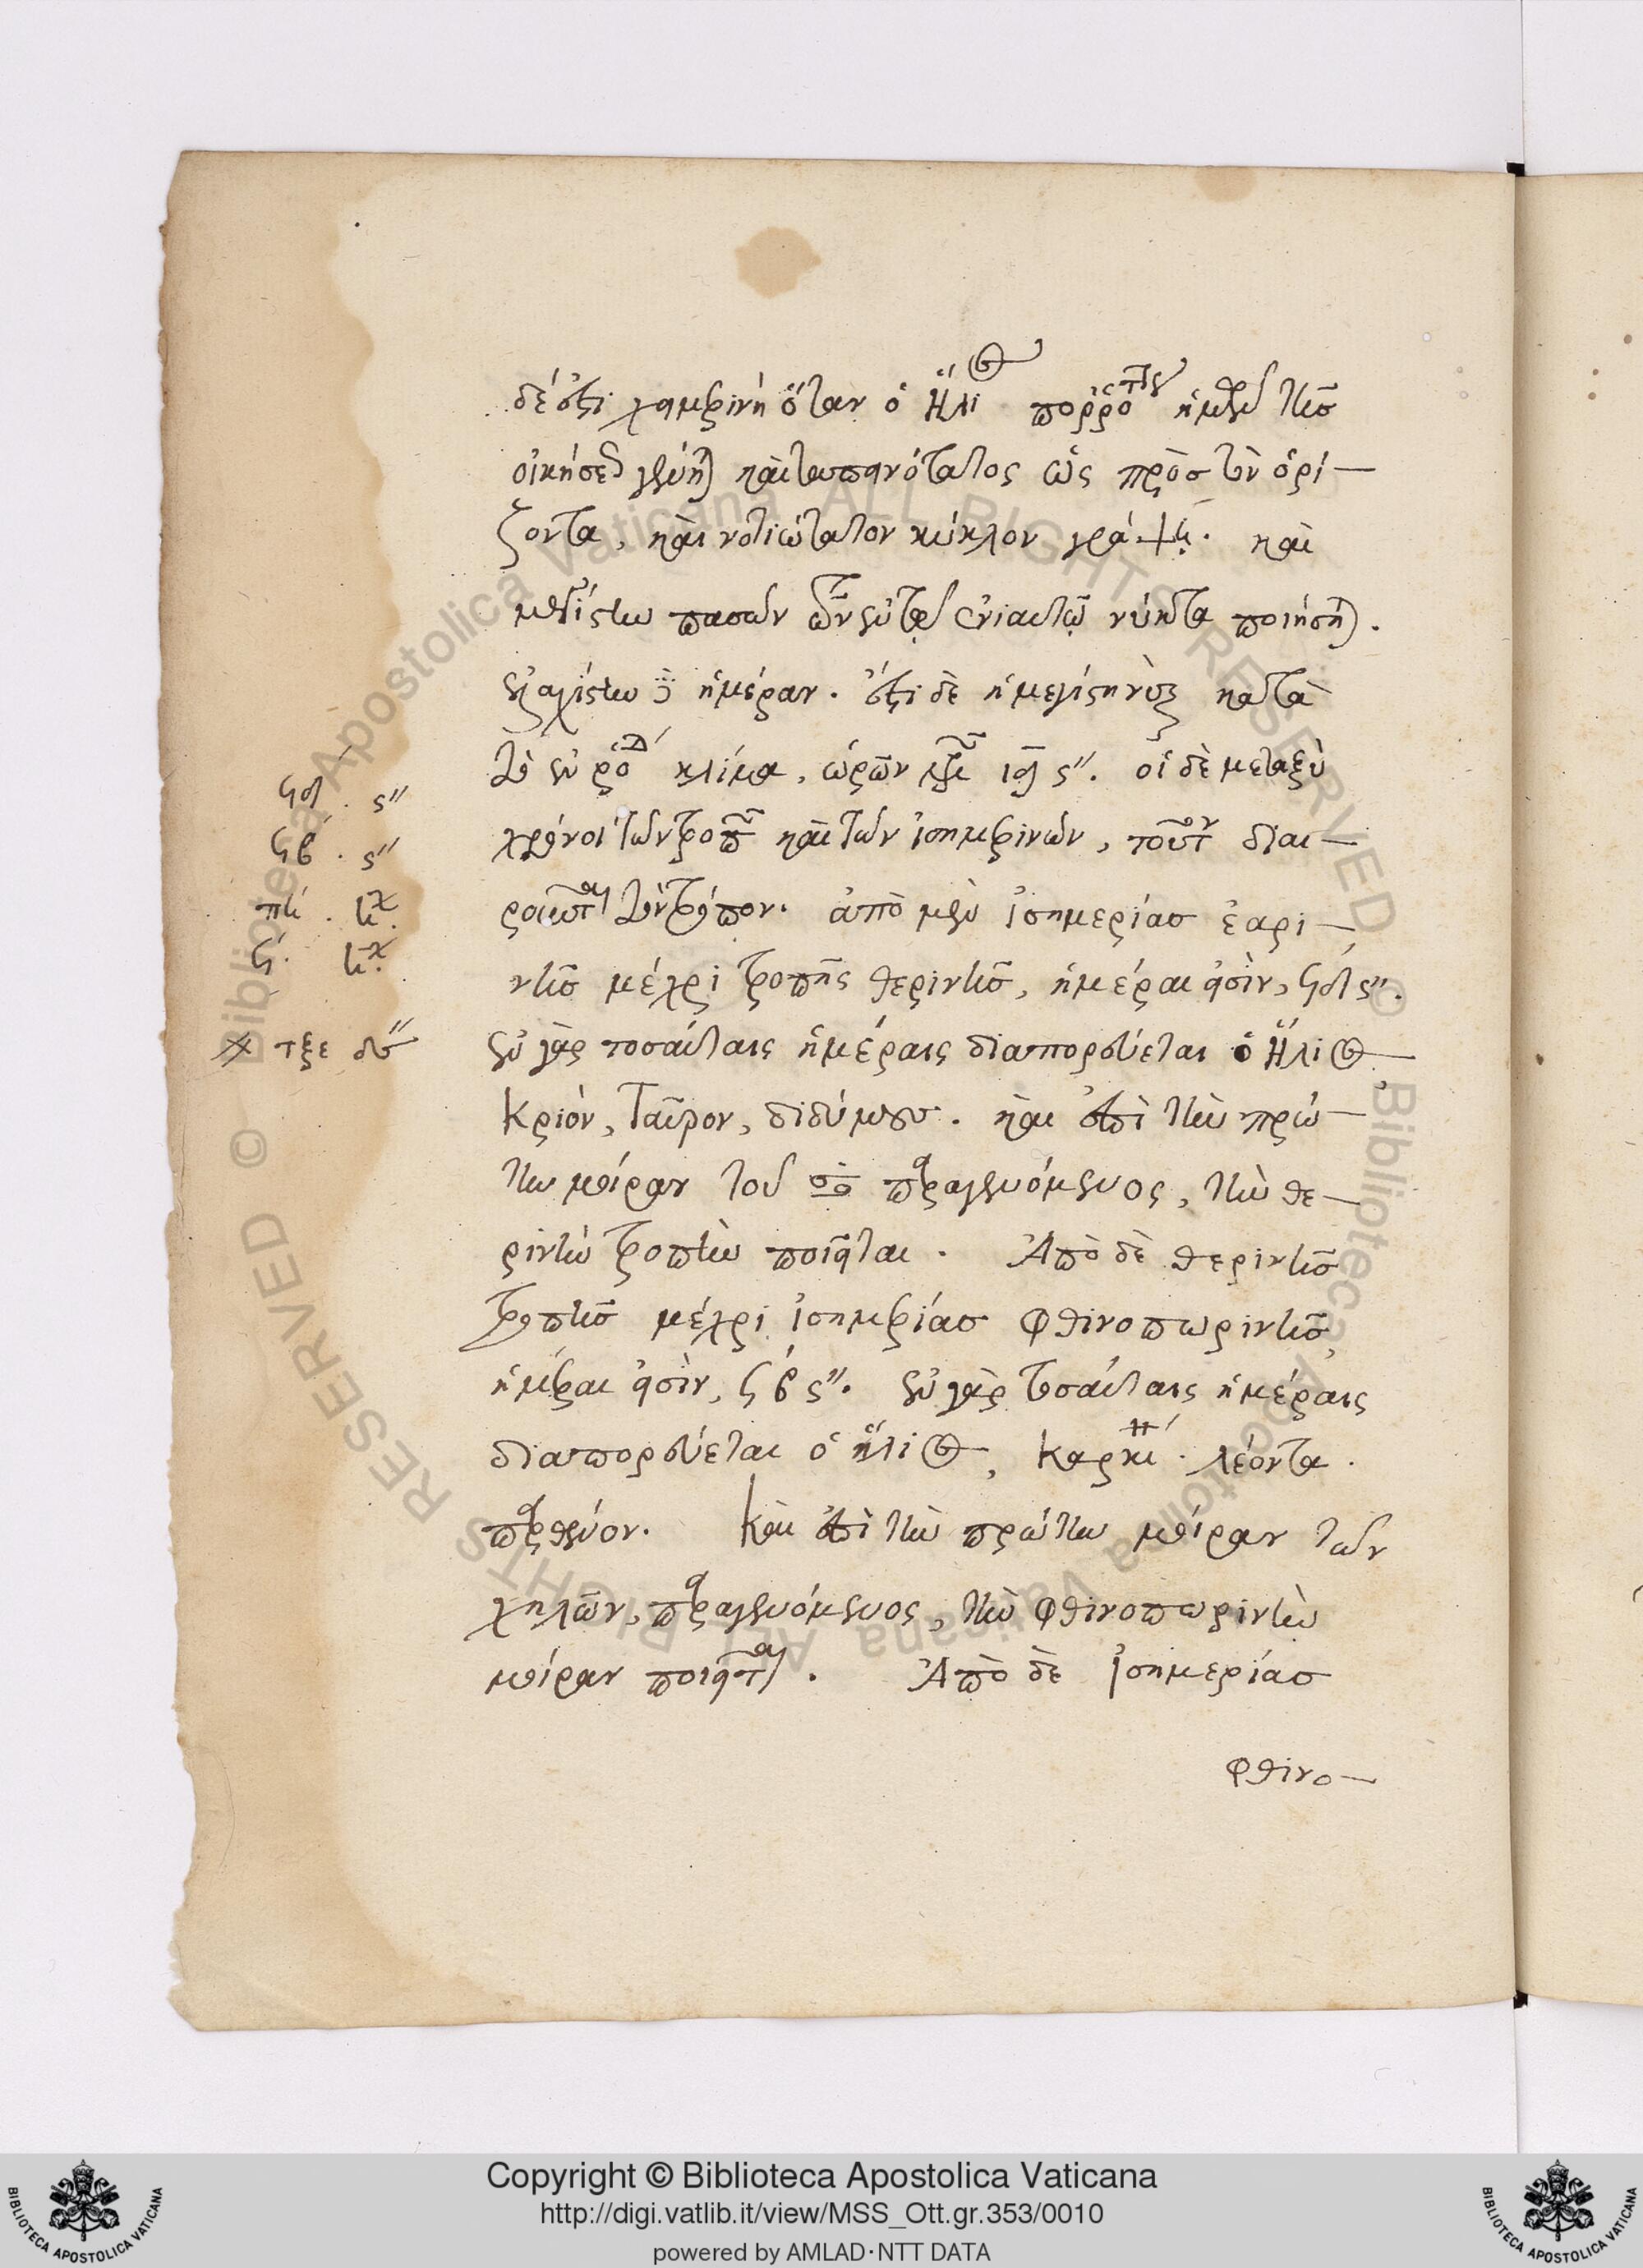 δέ ἐστι χειμερινὴ ὅταν ὁ Ἥλιος πορρότατος ἡμῶν τῆς
οἰκήσεως γένηται καὶ ταπεινότατος ὡς πρὸς τὸν ὁρί-
ζοντα, καὶ νοτιώτατον κύκλον γράψῃ. καὶ
μεγίστην πασῶν τῶν ἐν τῷ ἐνιαυτῷ νύκτα ποιήσηται.
ἐλαχίστην δὲ ἡμέραν. ἔστι δὲ ἡ μεγίστη νὺξ κατὰ
τὸ ἐν Ῥόδῳ κλίμα, ὡρῶν ιδ ς″. οἱ δὲ μεταξὺ
χρόνοι τῶν τροπῶν καὶ τῶν ἰσημερινῶν, τοῦτον διαι-
ροῦνται τὸν τρόπον. ἀπὸ μὲν ἰσημερίας ἐαρι-
νῆς μέχρι τροπῆς θερινῆς, ἡμέραι εἰσὶν, ϟδ ς″.
ἐν γὰρ τοσαύταις ἡμέραις διαπορεύεται ὁ Ἥλιος
Κριὸν, Ταῦρον, διδύμους. καὶ ἐπὶ τὴν πρώ-
την μοίραν τοῦ ♋ παραγενόμενος, τὴν θε-
ρινὴν τροπὴν ποιεῖται. Ἀπὸ δὲ θερινῆς
τροπῆς μέχρι ἰσημερίας φθινοπωρινῆς,
ἡμέραι εἰσὶν, ϟβ ς″. ἐν γὰρ τοσαύταις ἡμέραις
διαπορεύεται ὁ ἥλιος, Καρκίνον. λέοντα.
παρθένον. Καὶ ἐπὶ τὴν πρώτην μοίραν τῶν
χηλῶν, παραγενόμενος, τὴν φθινοπωρινὴν
μοίραν ποιεῖται. Ἀπὸ δὲ ἰσημερίας
φθινο-
ϟδ. ς″
ϟβ. ς″
πη.
ϟ.
τξε δ″
Copyright © Biblioteca Apostolica Vaticana
http://digi.vatlib.it/view/MSS_Ott.gr.353/0010
powered by AMLAD·NTT DATA
BIBLIOTECA APOSTOLICA VATICANA
BIBLIOTECA APOSTOLICA VATICANA
Biblioteca Apostolica Vaticana ALL RIGHTS RESERVED ©
Biblioteca Apostolica Vaticana ALL RIGHTS RESERVED ©